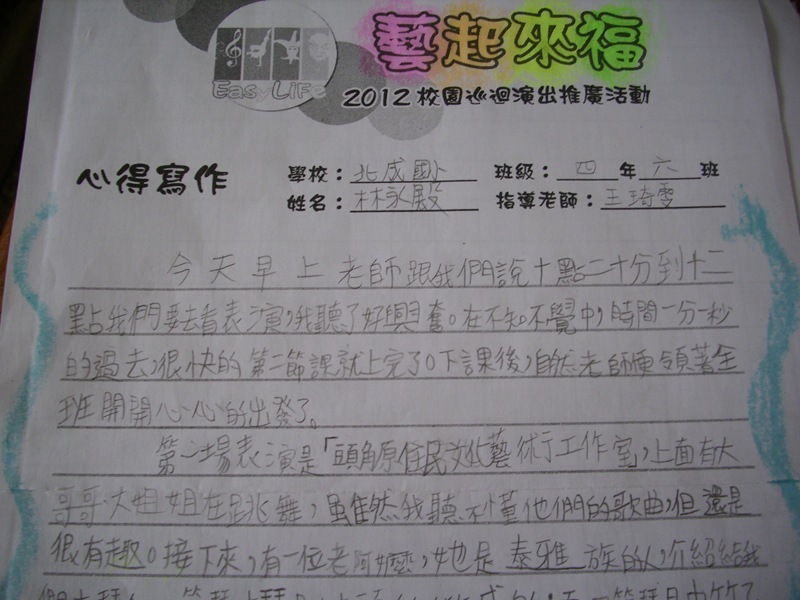 EasyLiFe
藝起來福
2012校園巡迴演出推廣活動
心得寫作
學校：北成國小 班級：四年六班
姓名：林永殿 指導老師：王琦雯
今天早上老師跟我們說十點二十分到十二
點我們要去看表演，我聽了好興奮。在不知不覺中，時間一分一秒
的過去，很快的第二節課就上完了。下課後，自然老師便領著全
班開開心心的出發了。
第一場表演是「頭角原住民文化藝術工作室」，上面有大
哥哥、大姐姐在跳舞，雖然我聽不懂他們的歌曲，但還是
很有趣。接下來，有一位老阿嬤，她是泰雅族的人，介紹給我